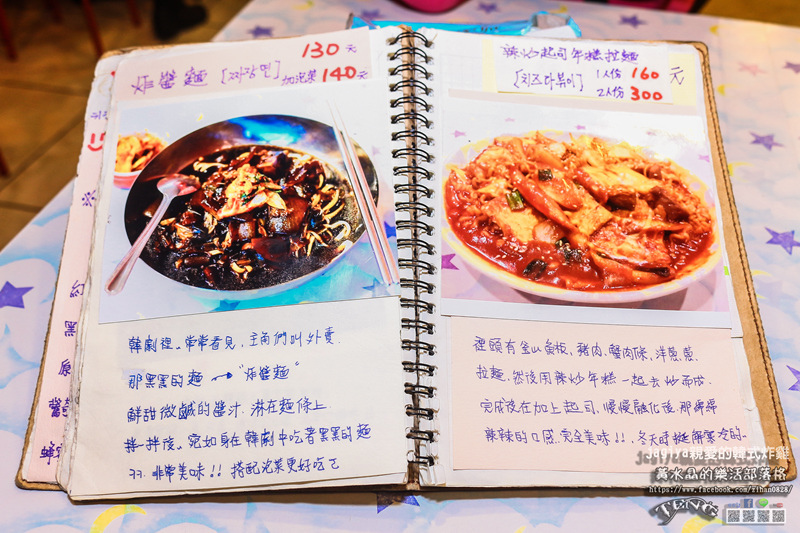 炸醬麵 [짜장면]
130元
加泡菜 140元
韓劇裡。常常看見，主角們叫外賣.
那黑黑的麵 → "炸醬麵"
鮮甜微鹹的醬汁. 淋在麵條上
拌一拌後。宛如身在韓劇中吃著黑黑的麵
ㄞㄞ. 非常美味!! 搭配泡菜更好吃ㄛ
辣炒起司年糕拉麵
[치즈라볶이] 1人份 160元
2人份 300
裡頭有釜山魚板、豬肉、蟹肉條、洋蔥、蔥、
拉麵. 然後用辣炒年糕一起去炒而成.
完成後在加上起司、慢慢融化後. 那綿綿
辣辣的口感. 完全美味!!. 冬天時挺解寒冷的~
Jagiya親愛的韓式炸雞
黃水晶的樂活部落格
https://www.facebook.com/rihan0828/
TENG